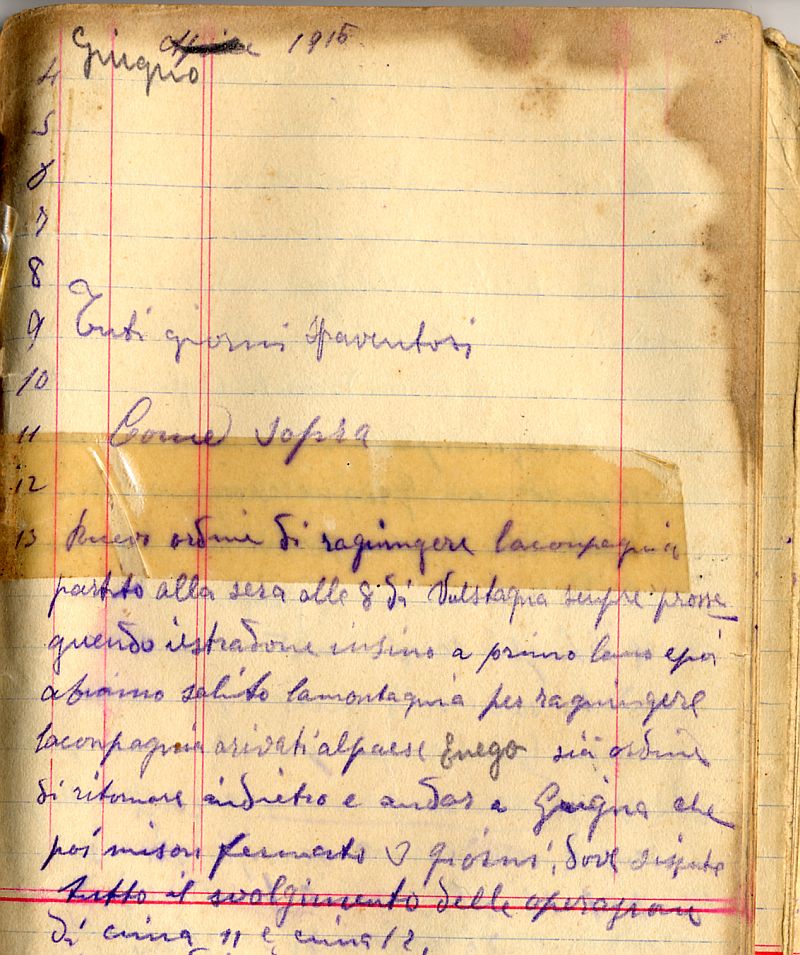 Giugno 1915
4
5
6
7
8
9 Tuti giorni spaventosi
10
11 Come sopra
12
13 ordine di ragiungere laconpagnia
partito alla sera alle 8 di Valstagna senpre prosse
guendo ilstradone insino a primolano epoi
abiamo salito lamontagnia per ragiungere
laconpagnia arivati alpaese Enego ordine
di ritornare indietro e andar a Grigna che
poi mison fermato 3 giorni, dove
tutto il svolgimento delle operazioni
di cima 11 e cima 12.